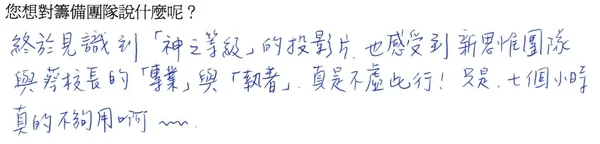 您想對籌備團隊說什麼呢？
終於見識到「神之等級」的投影片，也感受到新思惟團隊
與蔡校長的「專業」與「執著」，真是不虛此行！只是，七個小時
真的不夠用啊～～.